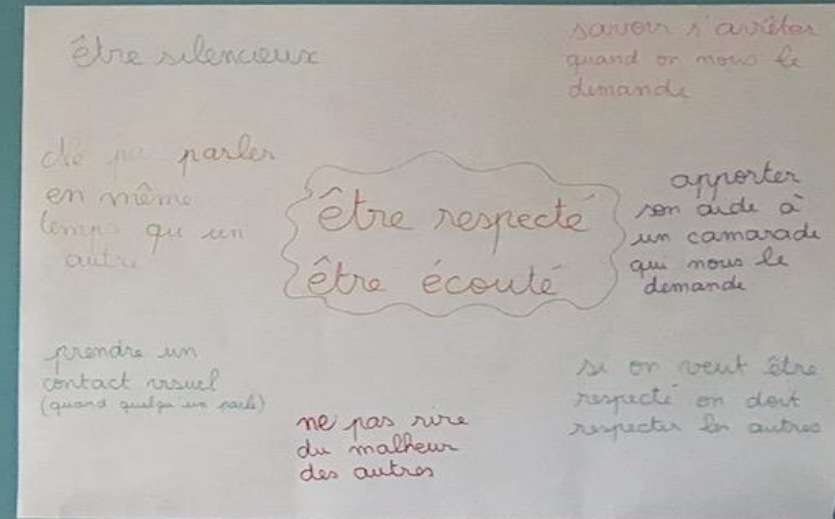 être silencieux
savoir s'arrêter
quand on nous le
demande
Ne pas parler
en même
temps qu un
autre
être respecté
être écouté
apporter
son aide à
un camarade
qui nous le
demande
prendre un
contact visuel
(quand quelqu'un parle)
ne pas rire
du malheur
des autres
si on veut être
respecté on doit
respecter les autres